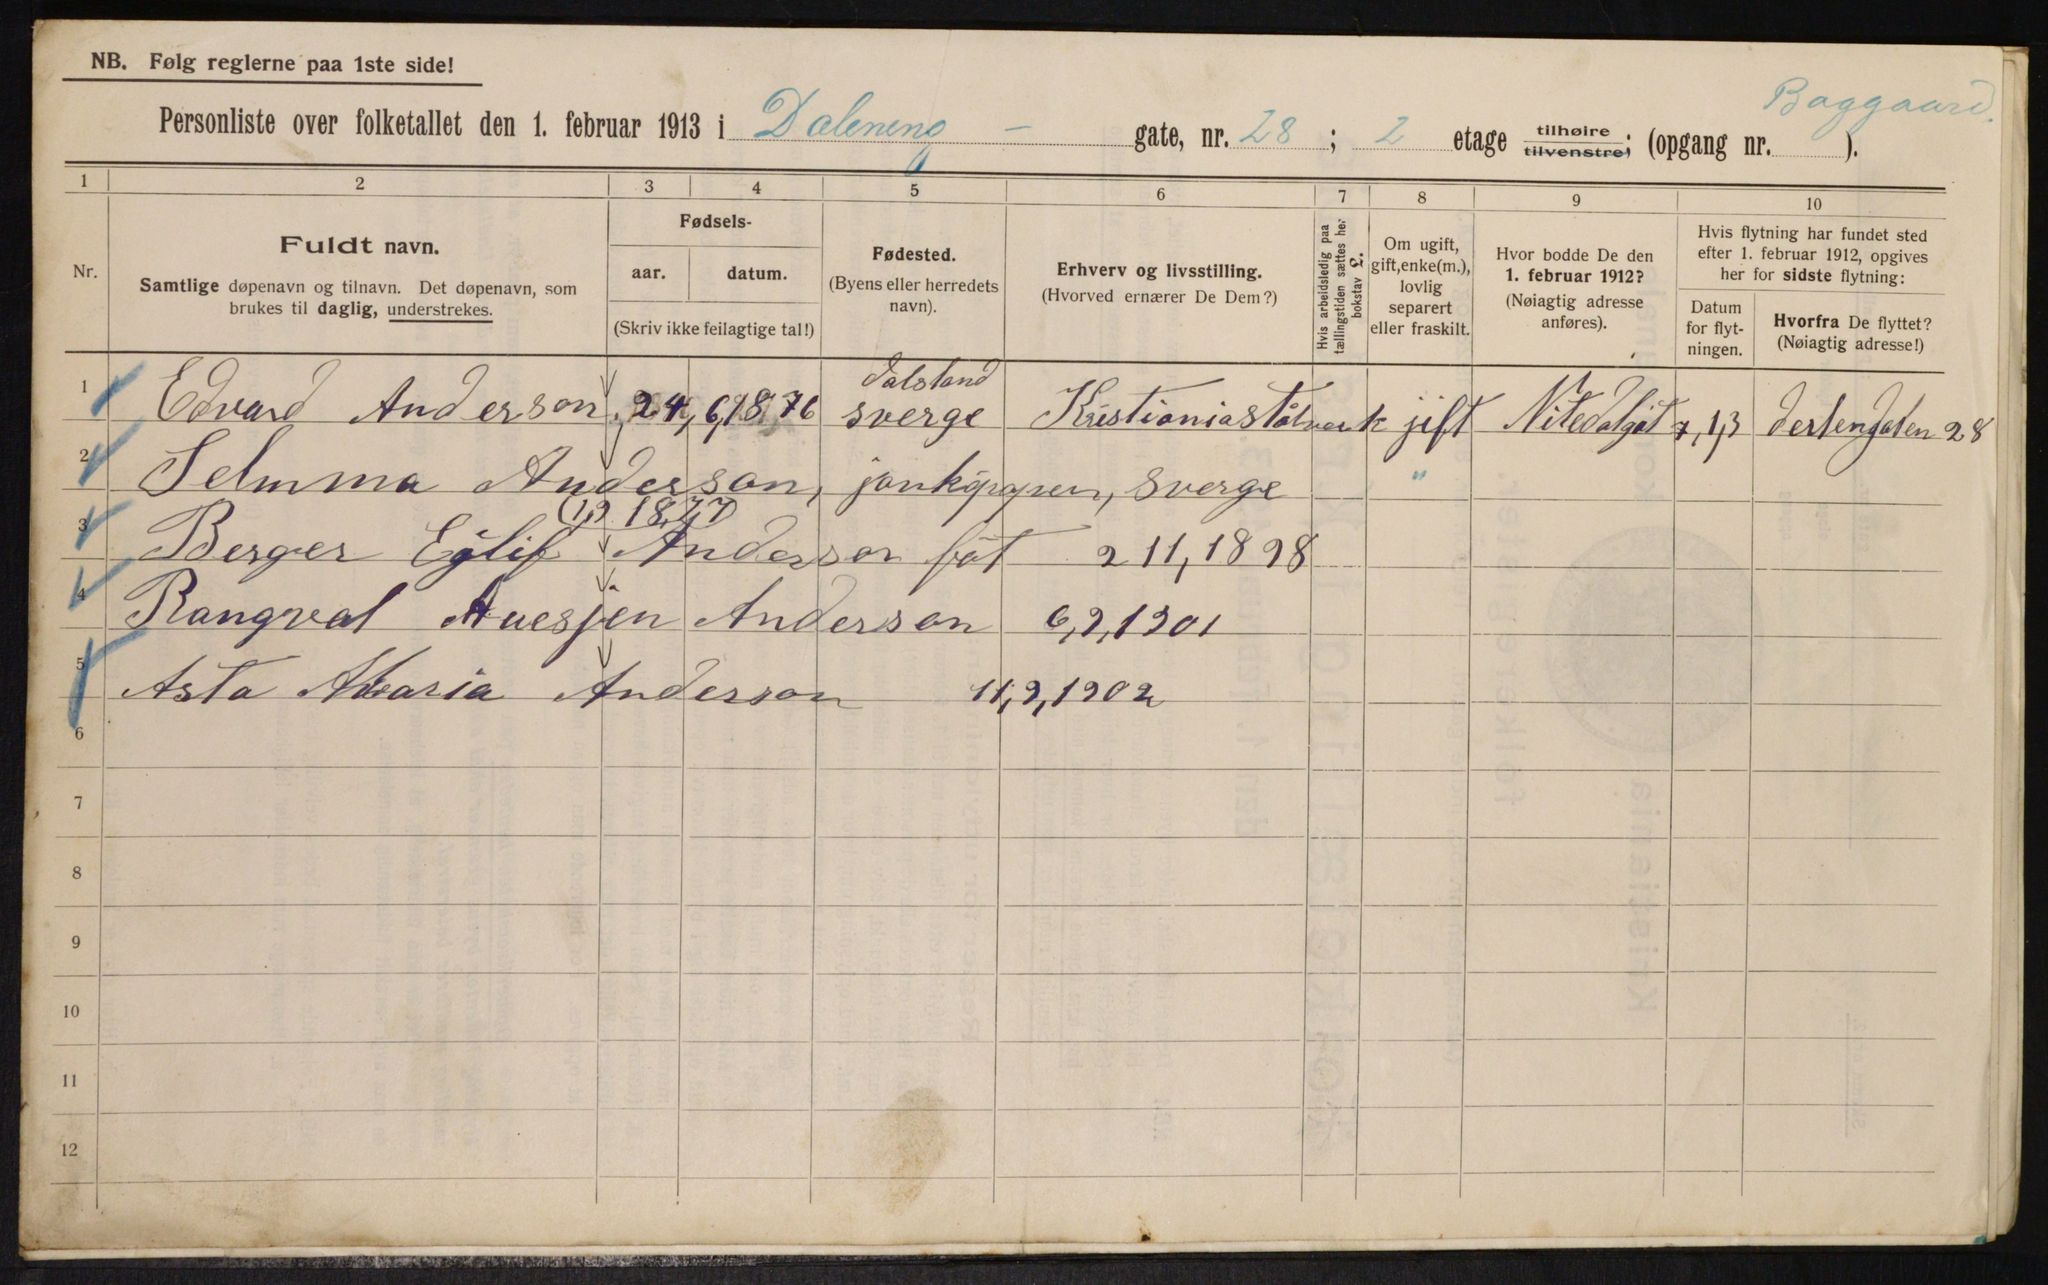 NB. Følg reglerne paa 1ste side!
Baggaard.
Personliste over folketallet den 1. februar 1913 i Daleneng - gate, nr. 28 ; 2 etage tilhøire tilvenstre; (opgang nr. ).
1 2 3 4 5 6 7 8 9 10
Nr.
Fuldt navn.
Samtlige døpenavn og tilnavn. Det døpenavn, som
brukes til daglig, understrekes.
Fødsels-
aar. datum.
(Skriv ikke feilagtige tal!)
Fødested.
(Byens eller herredets
navn).
Erhverv og livsstilling.
(Hvorved ernærer De Dem?)
Hvis arbeidsledig paa
tællingstiden sættes her
bokstav L.
Om ugift,
gift, enke(m.),
lovlig
separert
eller fraskilt.
Hvor bodde De den
1. februar 1912?
(Nøiagtig adresse
anføres).
Hvis flytning har fundet sted
efter 1. februar 1912, opgives
her for sidste flytning:
Datum
for flyt-
ningen.
Hvorfra De flyttet?
(Nøiagtig adresse!)
dalsland
1 Edvard Anderson, 24, 6, 18, 76 sverge Kristianiastålverk jift Nitedalgat 7, 1, 13 28
2 Selmma Anderson, jonköppen, sverge "
(1,9 18,77)
3 Berger Eglif Anderson föt 2 11, 1898
4 Rangval Anderson 6, 9, 1901
5 Asta Maria Anderson 11, 9, 1902
6
7
8
9
10
11
12